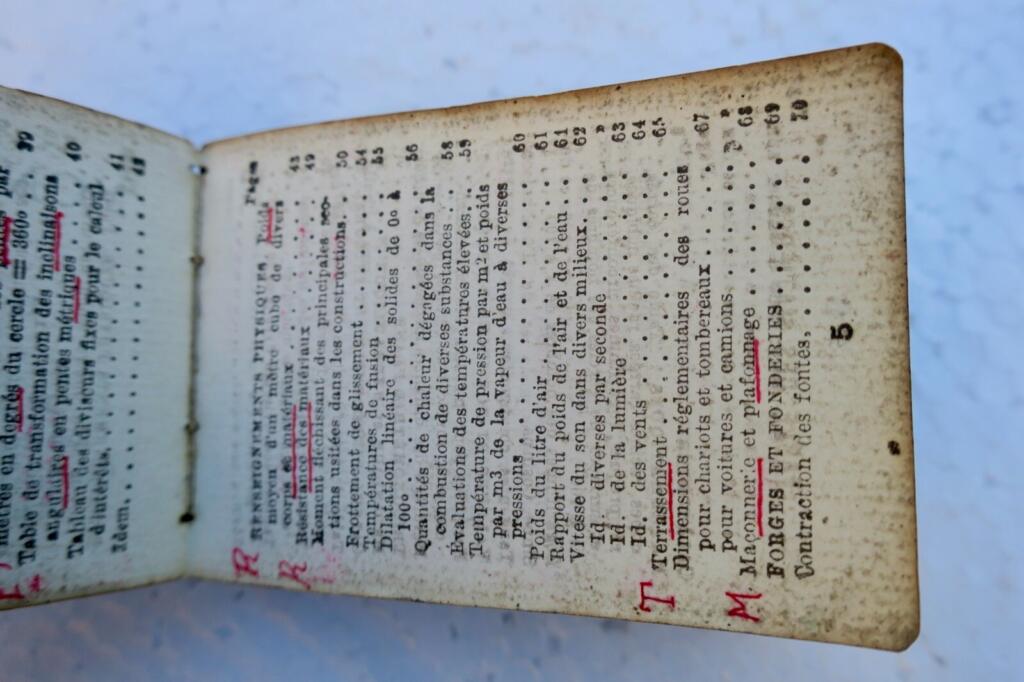 mètres en degrés du cercle = 360o . 39
Table de transformation des inclinaisons
angulaires en pentes métriques . . . . 40
Tableau des diviseurs fixes pour le calcul
d'intérêts. . . . . . . . . . . 41
Idem. . . . . . . . . . . . . 42
Pages
R RENSEIGNEMENTS PHYSIQUES. Poids
moyen d'un mètre cube de divers
corps et matériaux . . . . . . . . 43
R Résistance des matériaux . . . . . . . 49
Moment fléchissant des principales sec-
tions usitées dans les constructions. . . 50
Frottement de glissement . . . . . . . 54
Températures de fusion . . . . . . . . 55
Dilatation linéaire des solides de 0o à
100o . . . . . . . . . . . . . 56
Quantités de chaleur dégagées dans la
combustion de diverses substances . . . 58
Évaluations des températures élevées. . . 59
Température de pression par m2 et poids
par m3 de la vapeur d'eau à diverses
pressions . . . . . . . . . . . . 60
Poids du litre d'air . . . . . . . . . 61
Rapport du poids de l'air et de l'eau . . . 61
Vitesse du son dans divers milieux. . . . 62
Id. diverses par seconde . . . . . . »
Id. de la lumière . . . . . . . . . 63
Id. des vents . . . . . . . . . . 64
T Terrassement . . . . . . . . . . . 65
Dimensions réglementaires des roues
pour chariots et tombereaux . . . . . 67
pour voitures et camions . . . . . . »
M. Maçonnerie et plafonnage . . . . . . . 68
FORGES ET FONDERIES . . . . . . . 69
Contraction des fontes. . . . . . . . . 70
5